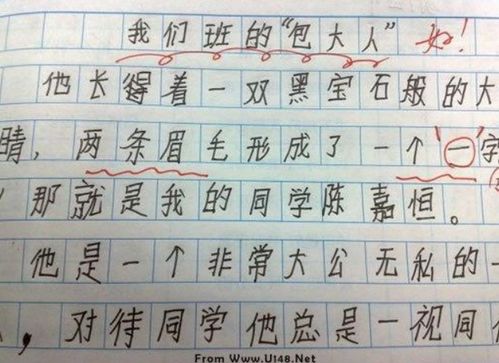 我们班的“包大人” 好!
他长得着一双黑宝石般的大
睛，两条眉毛形成了一个“一”字
那就是我的同学陈嘉恒。
他是一个非常大公无私的一
，对待同学他总是一视同
From Www.U148.Net